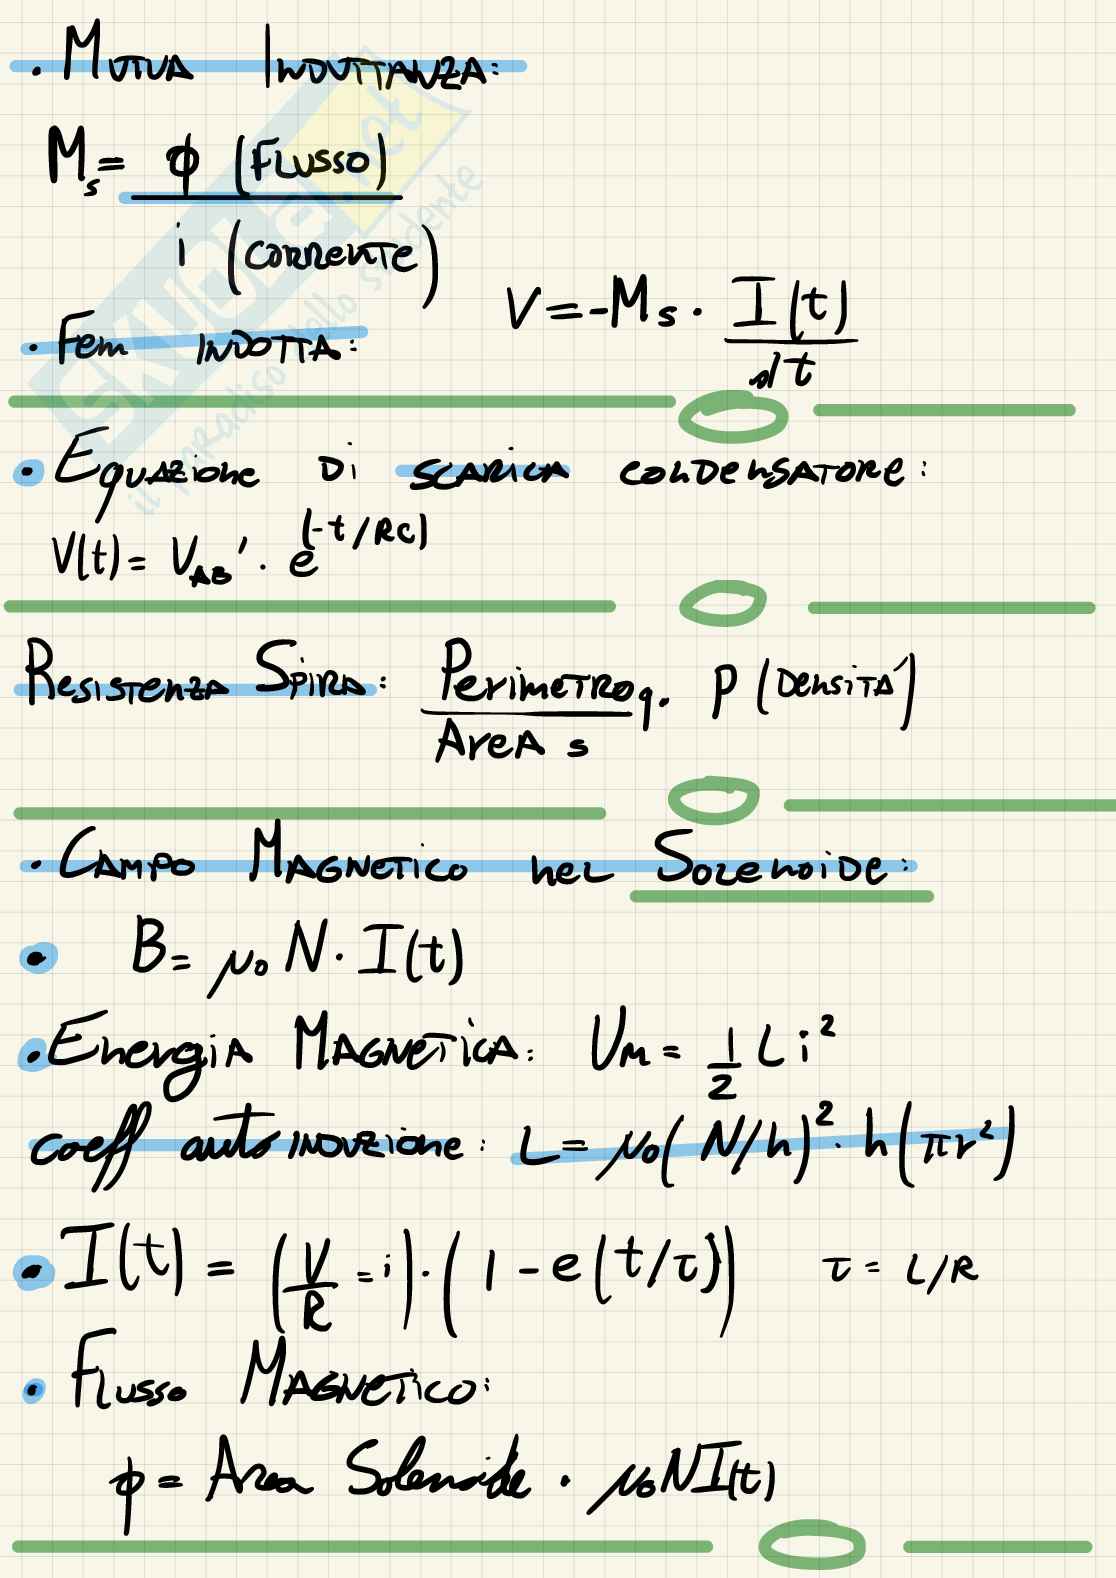 . Mutua Induttanza:
Ms = φ (Flusso)
i (corrente)
. Fem indotta: V = -Ms · I(t)
dt
• Equazione di scarica condensatore:
V(t) = VAB' · e(-t/RC)
Resistenza Spira: Perimetro q. ρ (Densità)
Area s
. Campo Magnetico nel Solenoide:
• B = μ0 N · I(t)
. Energia Magnetica: Um = 1/2 L i²
coeff autoinduzione: L = μ0 (N/h)² · h(πr²)
• I(t) = (V/R = i) · (1 - e(t/τ)) τ = L/R
• Flusso Magnetico:
φ = Area Solenoide · μ0NI(t)
SKUOLA.net
il paradiso dello studente